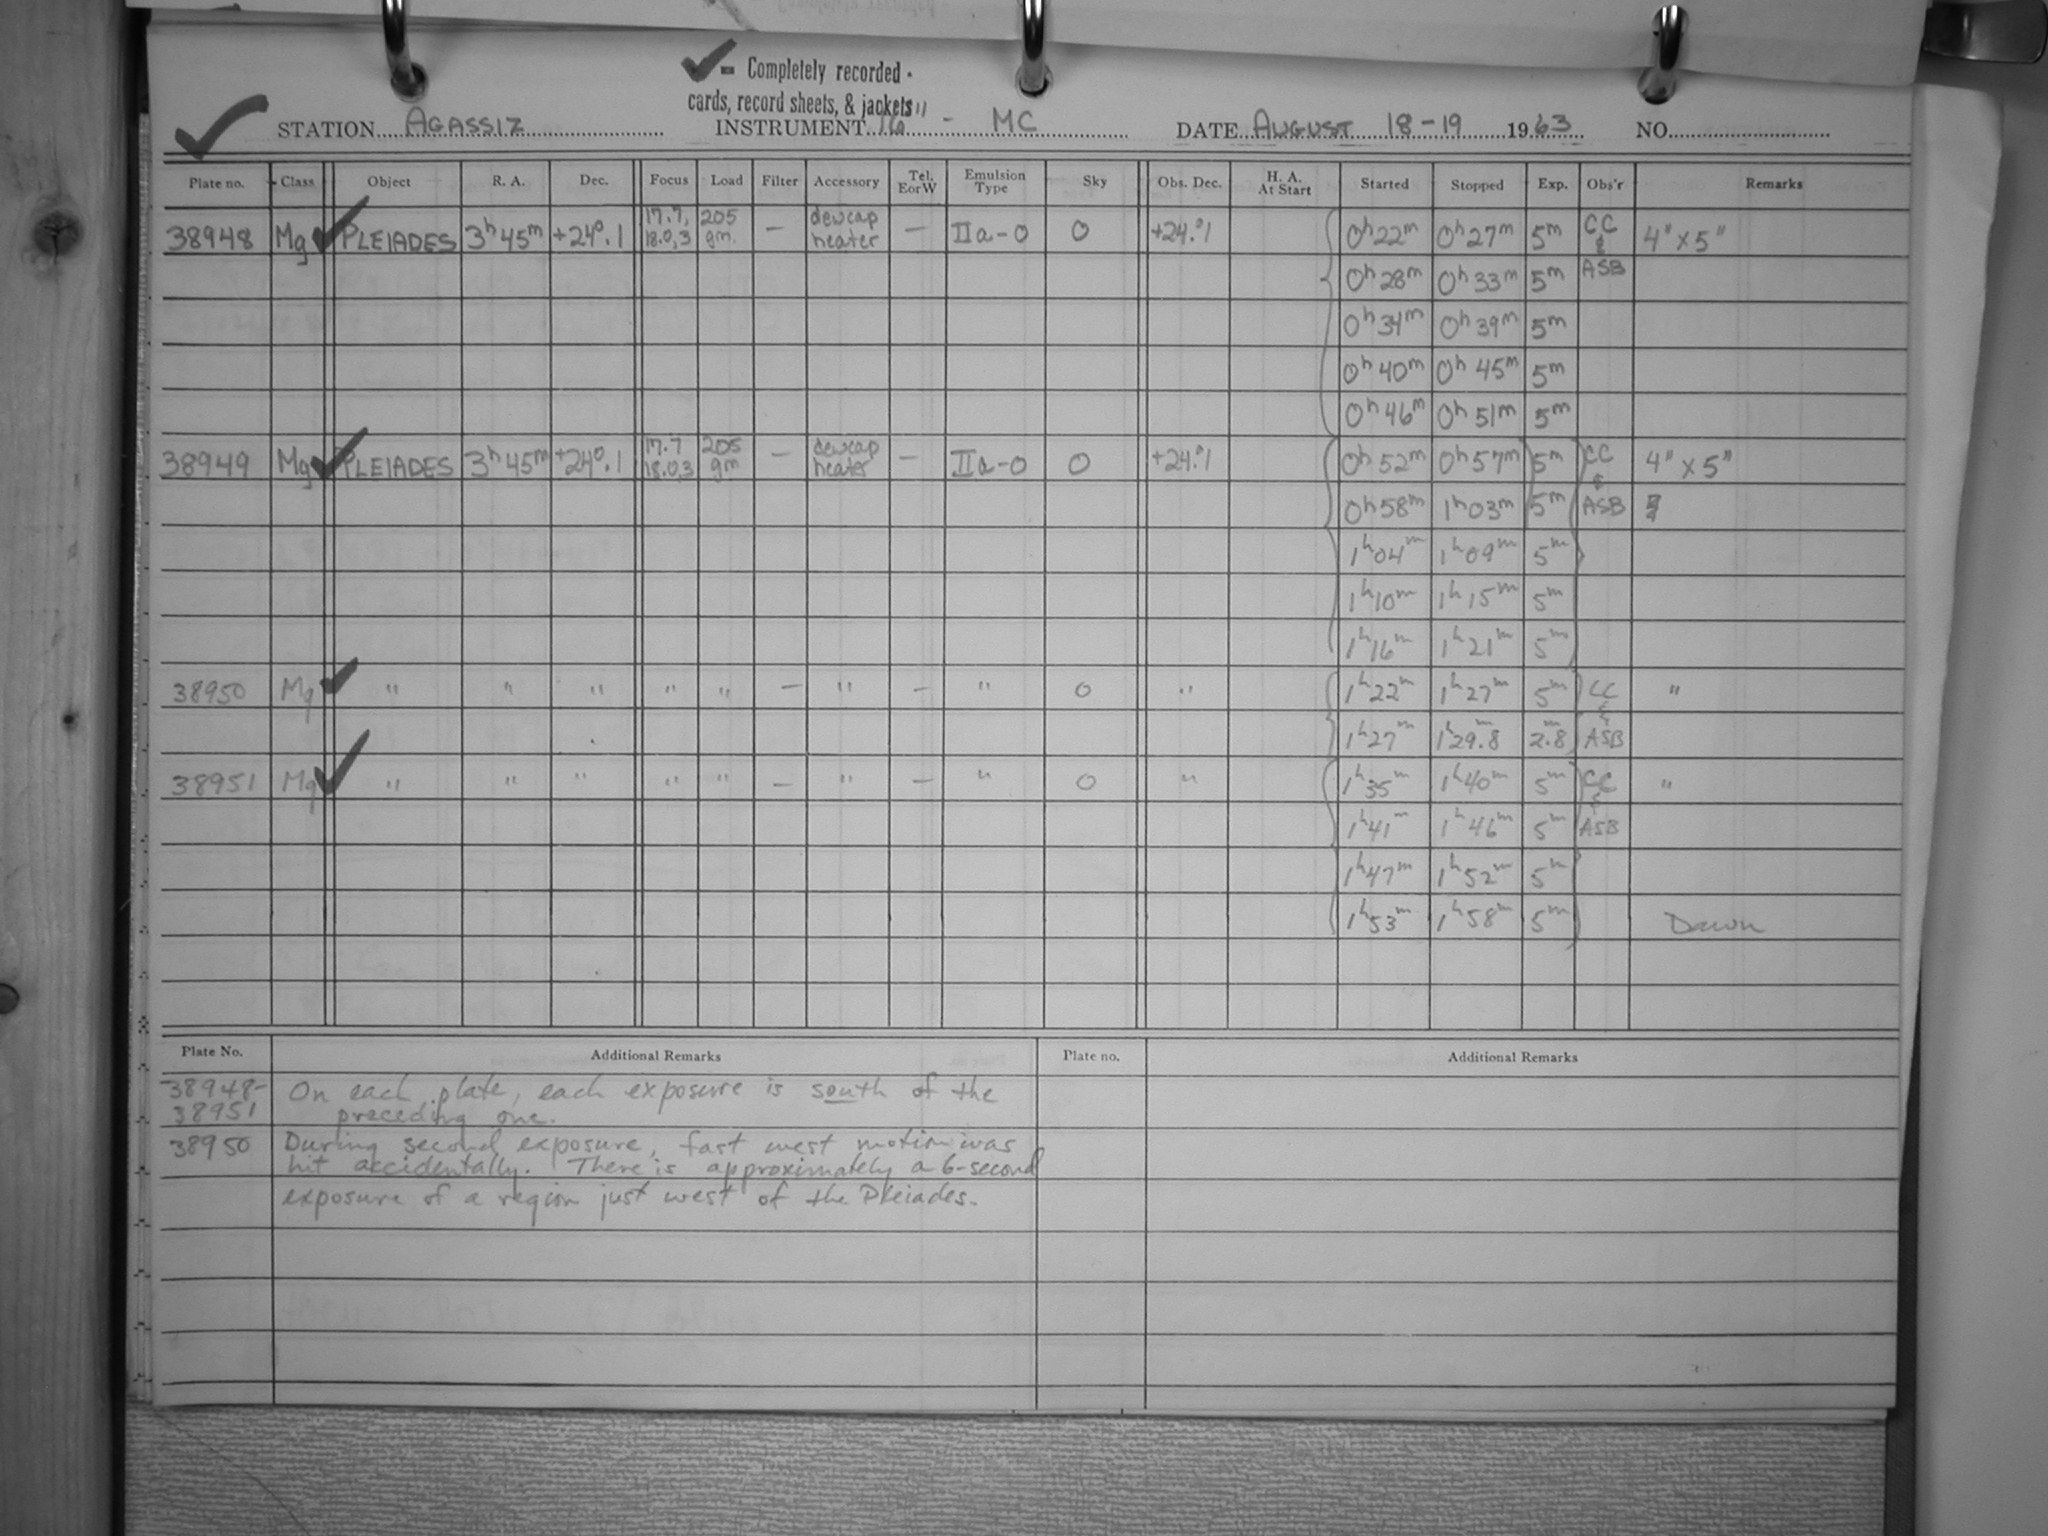 ✓ = Completely recorded -
cards, record sheets, & jackets
STATION AGASSIZ INSTRUMENT 16" - MC DATE AUGUST 18-19 1963 NO.
Plate no. Class Object R. A. Dec. Focus Load Filter Accessory Tel. EorW Emulsion Type Sky Obs. Dec. H. A. At Start Started Stopped Exp. Obs'r Remarks
38948 Mg ✓ PLEIADES 3h 45m +24°.1 17.7, 18.0,3 205 gm. - dewcap heater - IIa-O O +24.°1 0h 22m 0h 27m 5m CC & 4" x 5"
0h 28m 0h 33m 5m ASB
0h 34m 0h 39m 5m
0h 40m 0h 45m 5m
0h 46m 0h 51m 5m
38949 Mg ✓ PLEIADES 3h 45m +24°.1 17.7 18.0,3 205 gm - dewcap heater - IIa-O O +24.°1 0h 52m 0h 57m 5m CC & 4" x 5"
0h 58m 1h 03m 5m ASB
1h 04m 1h 09m 5m
1h 10m 1h 15m 5m
1h 16m 1h 21m 5m
38950 Mg ✓ " " " " " - " - " O " 1h 22m 1h 27m 5m CC & "
1h 27m 1h 29.8m 2.8m ASB
38951 Mg ✓ " " " " " - " - " O " 1h 35m 1h 40m 5m CC & "
1h 41m 1h 46m 5m ASB
1h 47m 1h 52m 5m
1h 53m 1h 58m 5m Dawn
Plate No. Additional Remarks Plate no. Additional Remarks
38948- On each plate, each exposure is south of the
38951 preceding one.
38950 During second exposure, fast west motion was
hit accidentally. There is approximately a 6-second
exposure of a region just west of the Pleiades.